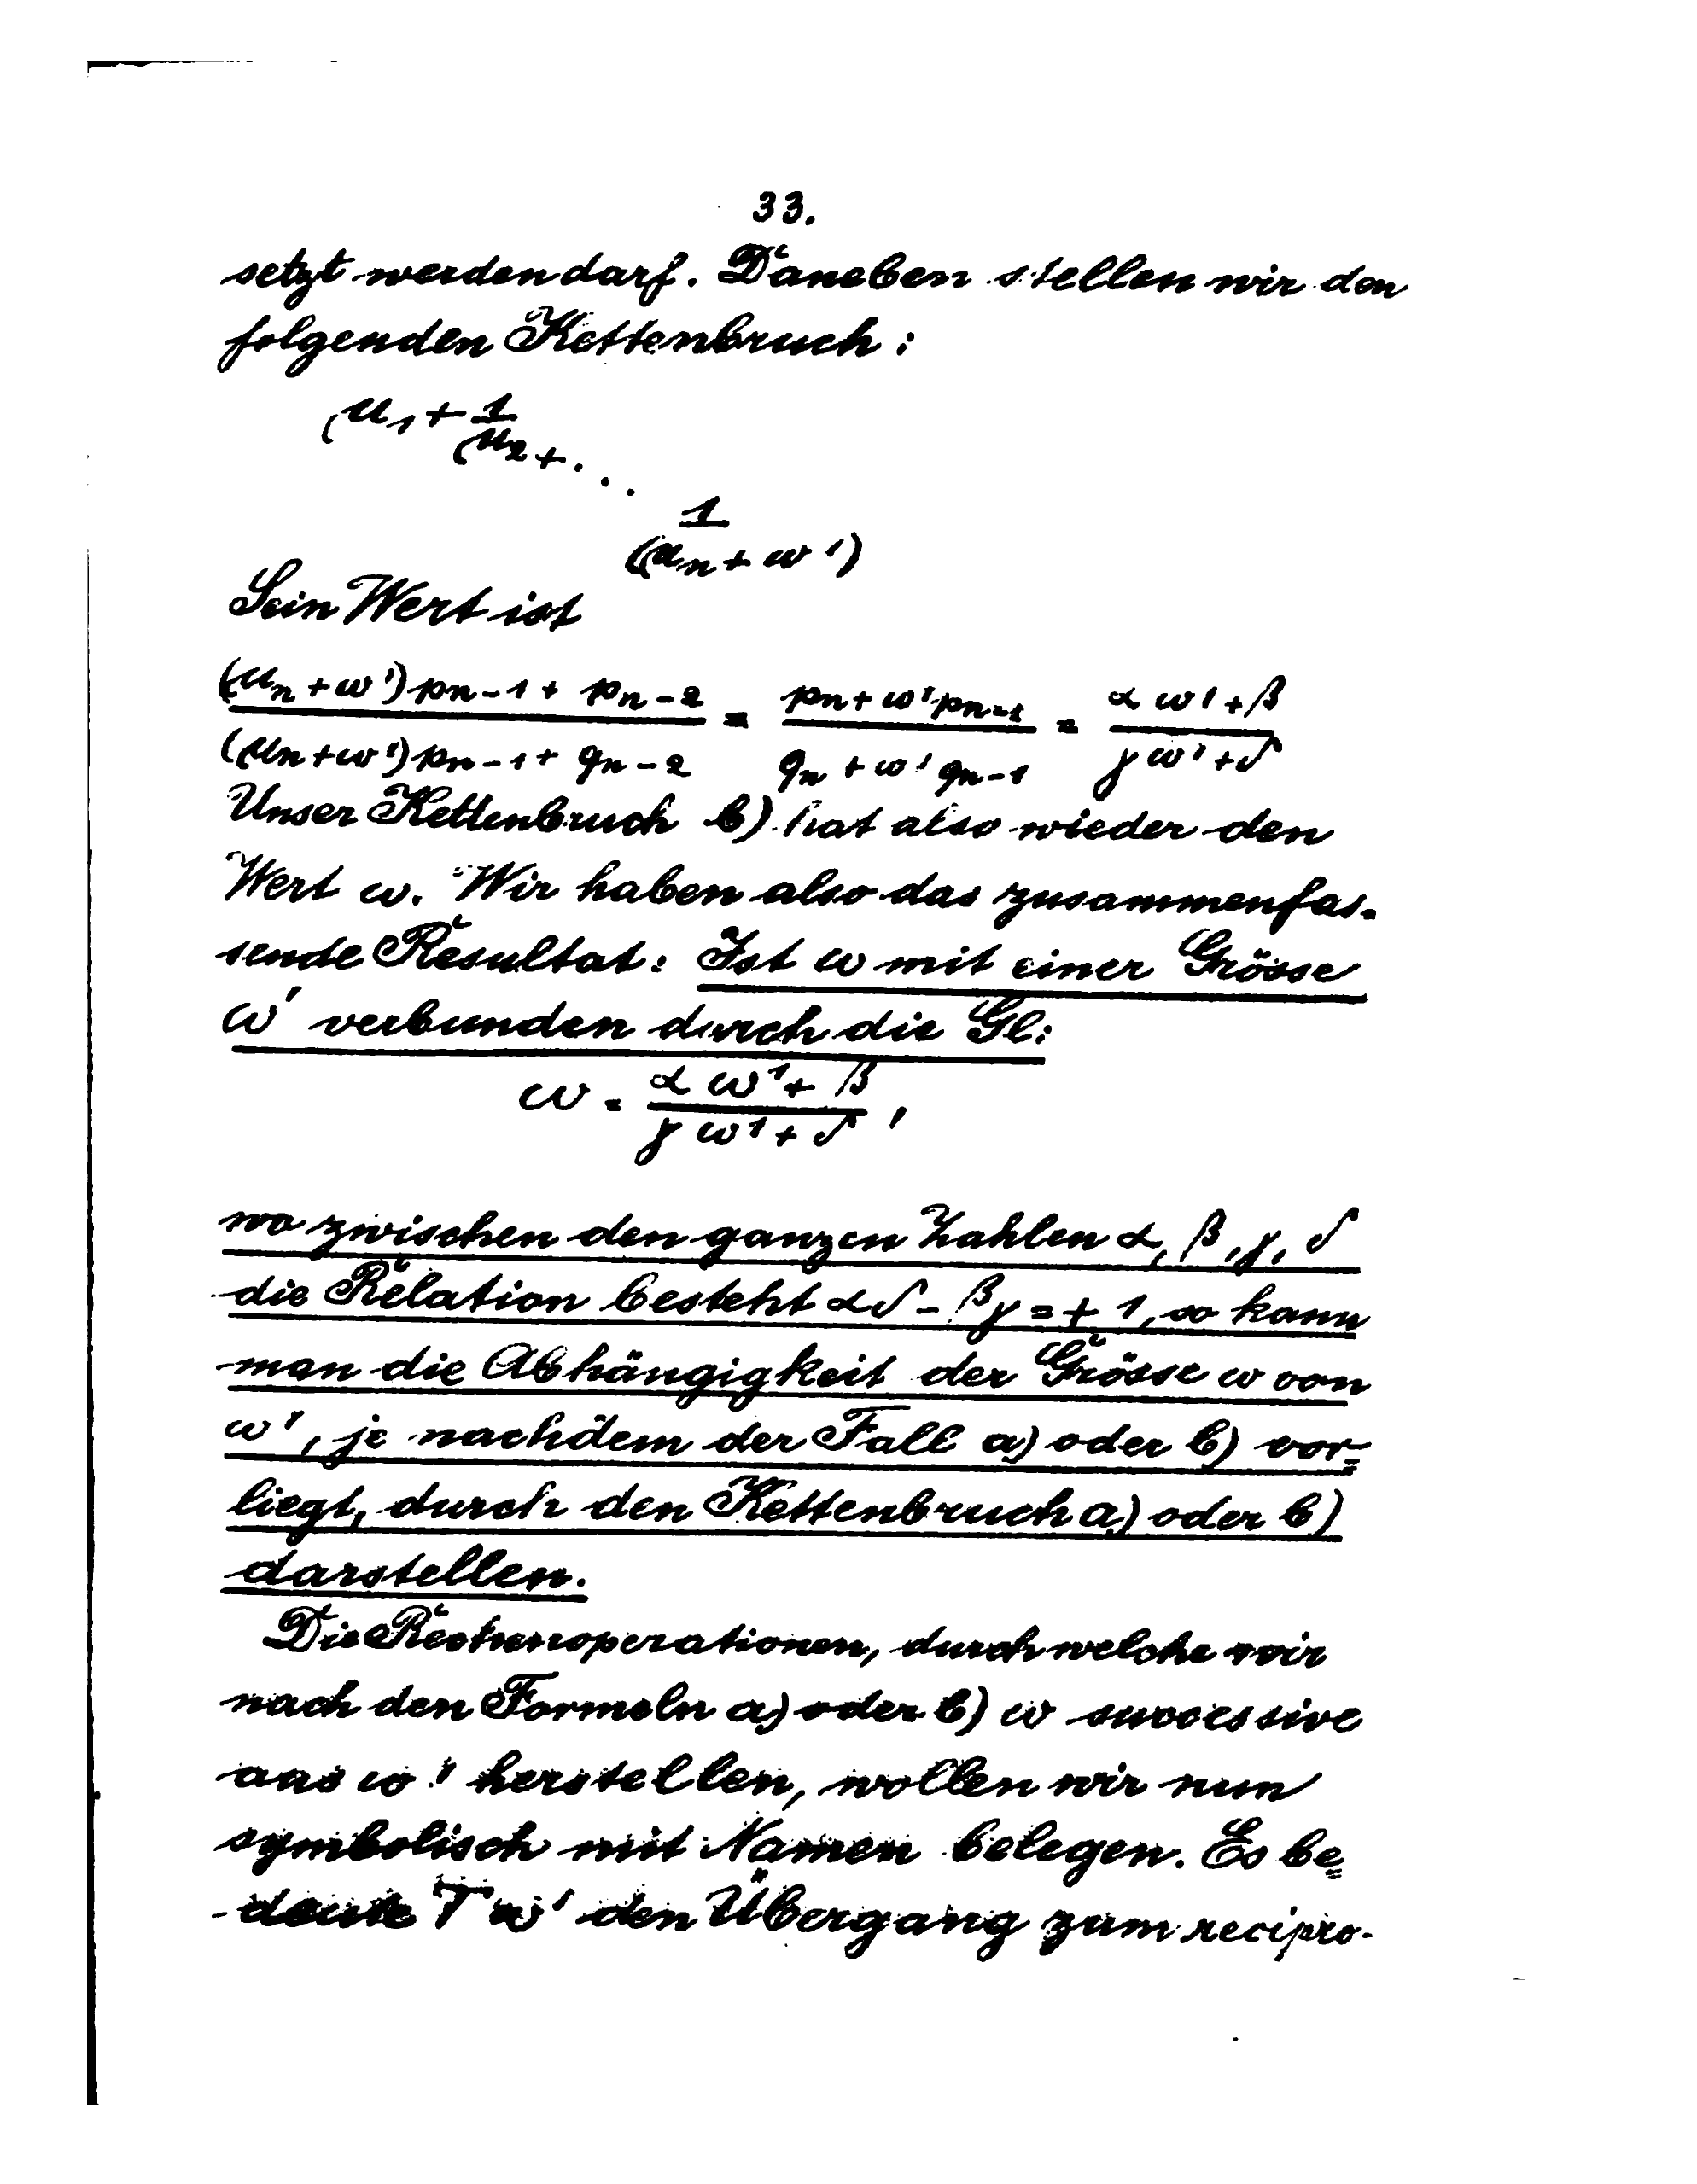 33.
setzt werden darf. Daneben stellen wir den
folgenden Kettenbruch:
μ₁ + 1
μ₂ + . . .
1
(μₙ + ω')
Sein Wert ist
(μₙ + ω') pₙ₋₁ + pₙ₋₂ = pₙ + ω' pₙ₋₁ = α ω' + β
(μₙ + ω') pₙ₋₁ + qₙ₋₂   qₙ + ω' qₙ₋₁   γ ω' + δ
Unser Kettenbruch b) hat also wieder den
Wert ω. Wir haben also das zusammenfas-
sende Resultat: Ist ω mit einer Grösse
ω' verbunden durch die Gl:
ω = α ω' + β
γ ω' + δ ,
wo zwischen den ganzen Zahlen α, β, γ, δ
die Relation besteht αδ - βγ = + 1, so kann
man die Abhängigkeit der Grösse ω von
ω', je nachdem der Fall a) oder b) vor=
liegt, durch den Kettenbruch a) oder b)
darstellen.
Die Rechenoperationen, durch welche wir
nach den Formeln a) oder b) ω successive
aus ω' herstellen, wollen wir nun
symbolisch mit Namen belegen. Es be=
deute T ω' den Übergang zum recipro-